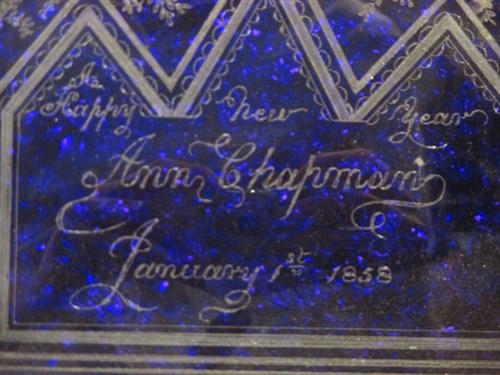 A
Happy New Year
Ann Chapman
January 1st 1858